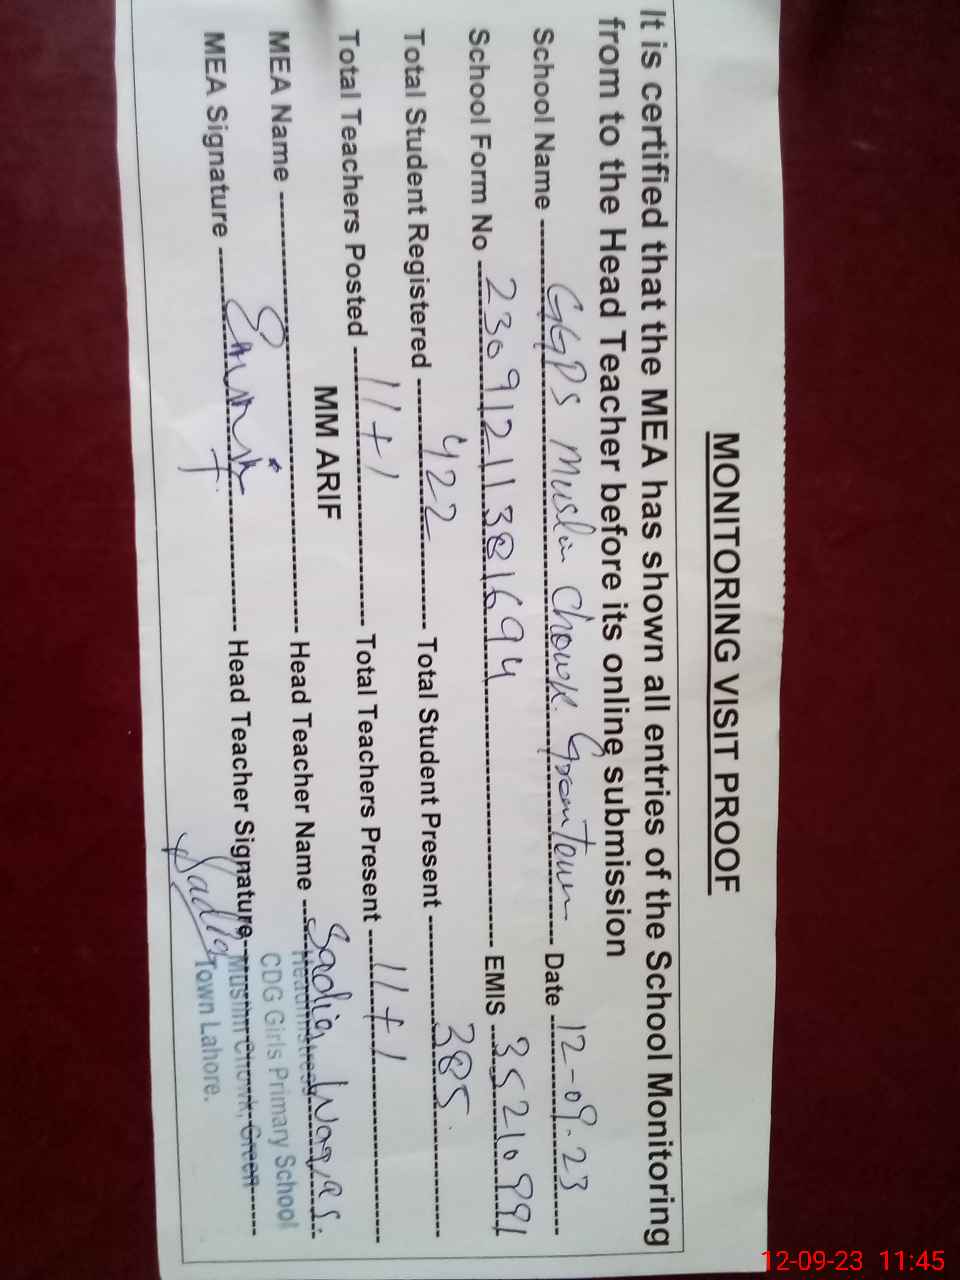 MONITORING VISIT PROOF
It is certified that the MEA has shown all entries of the School Monitoring
from to the Head Teacher before its online submission
School Name GGPS Muslim Chowk Greentown Date 12-09-23
School Form No 23091211381694 EMIS 35210991
Total Student Registered 422 Total Student Present 385
Total Teachers Posted 11+1 Total Teachers Present 11+1
MM ARIF
MEA Name Head Teacher Name Sadia
MEA Signature Head Teacher Signature Sadia
Headmistress
CDG Girls Primary School
Muslim Chowk, Green
Town Lahore.
12-09-23 11:45